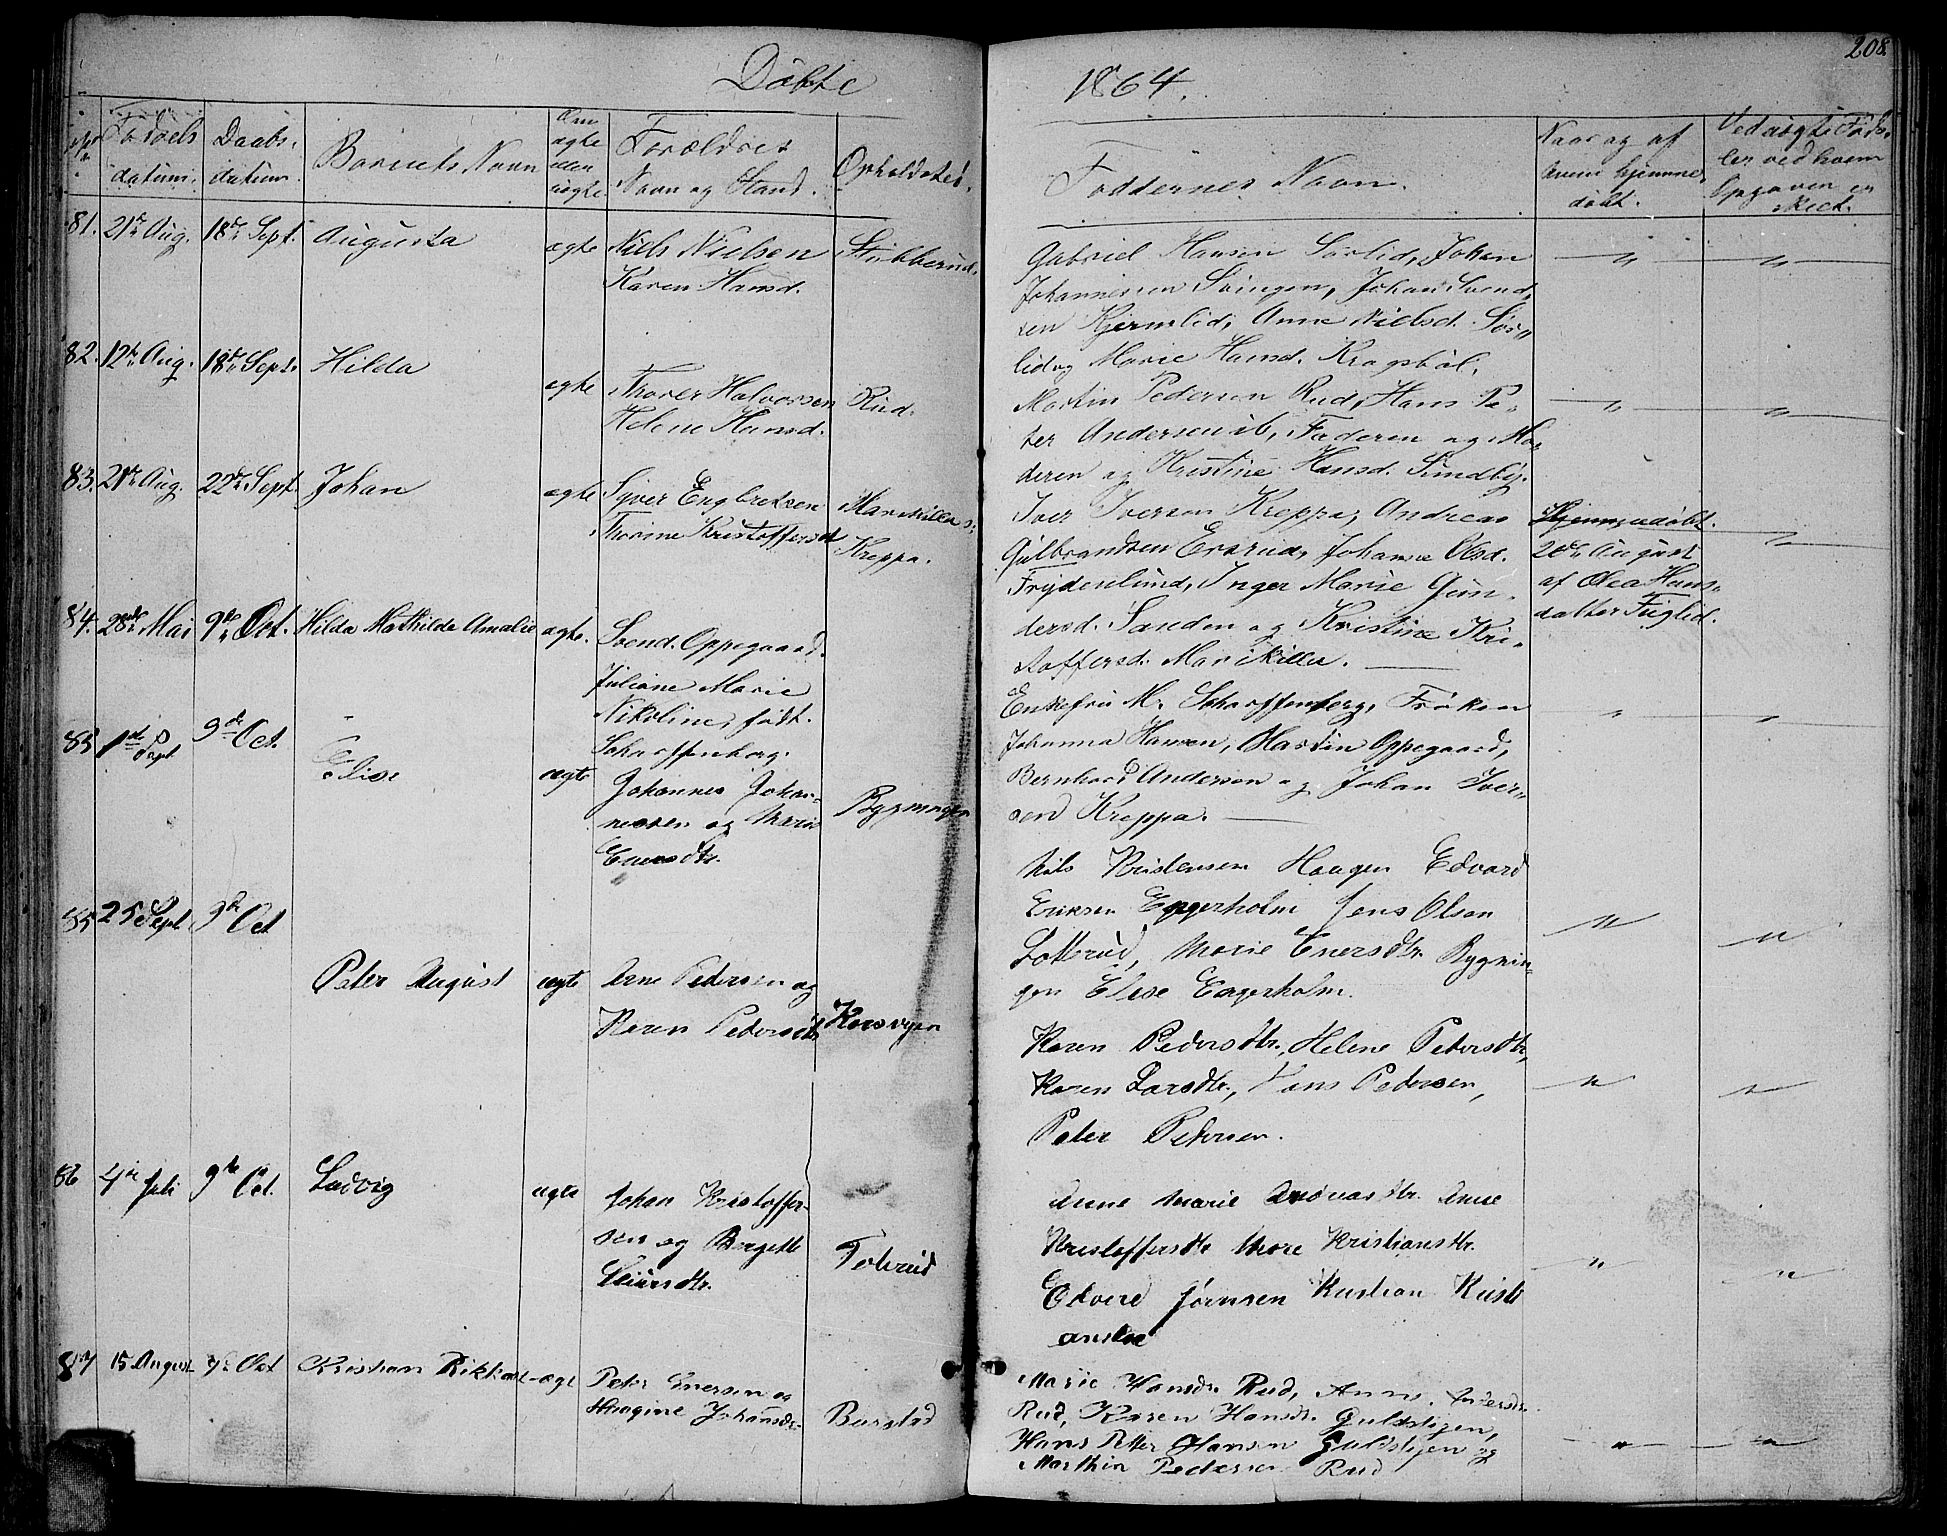 208
Døbte 1864.
No.
Fødsels datum.
Daabs datum.
Barnets Navn
Om ægte eller uægte
Forældres Navn og Stand.
Opholdsted.
Faddernes Navn.
Naar og af hvem hjemmedøbt.
Ved uægte Føds-
ler ved hvem
Opgaven er
skeet.
81. 21de Aug. 18de Sept. Augusta ægte Niels Nielsen Stubberud.
Karen Hansd.
Gabriel Hansen Sørlid, Johan
Johannessen Svingen, Johan Svend-
sen Kjernlid, Anne Nielsd. Sør-
lid og Marie Hansd. Kragsbøl.
82. 12te Aug. 18de Sept. Hilda
ægte Thorer Halvorsen Rud.
Helene Hansd.
Martin Pedersen Rud, Hans Pe-
ter Andersen ib, Faderen og Mo-
deren og Kristine Hansd. Sundby.
83. 21de Aug. 22de Sept. Johan ægte Syver Engbretsen Marikillen,
Thorine Kristoffersd. Kreppa.
Iver Iversen Kreppa, Andreas
Gulbrandsen Ersrud, Johanne Olsd.
Frydenlund, Inger Marie Gun-
dersd. Sanden og Kristine Kri-
stoffersd. Marikillen.
Hjemmedøbt
20de August
af Olea Hans-
datter Fuglid.
84. 28de Mai 9de Oct. Hilda Mathilda Amalie ægte. Svend Oppegaard.
Juliane Marie
Nikoline, født
Scharffenberg.
Enkefru M. Scharffenberg, Frøken
Johanna Hansen, Martin Oppegaard,
Bernhard Andersen og Johan Iver-
sen Kreppa.
85 1ste Sept 9de Oct. Elise ægte Johannes Johan-
nesen og Marie
Enersdtr.
Bygningen
Nils Kristensen Haagen Edvard
Eriksen Engerholm Jens Olsen
Lotterud, Marie Enersdtr. Bygnin-
gen Elise Engerholm.
85 25 Sept 9de Oct
Peter August ægte Arne Pedersen og
Karen Pedersdtr Korsvegen
Karen Pedersdtr., Helene Petersdtr,
Karen Larsdtr., Hans Pedersen,
Peter Petersen.
86 4de Juli 9de Oct. Ludvig ægte Johan Kristoffer-
sen og Bergette
Simensdtr.
Tobrud
Anne Marie Andreasdtr. Anne
Kristoffersdtr Mare Kristiansdtr.
Edvard Jørnsen Kristian Kristi
ansen
87 15 August 9de Oct Kristian Rikhart ægt Peter Enersen og
Haagine Johansdr. Burstad
Marie Hansdr. Rud, Anne Andersdr.
Rud, Karen Hansdr. Guldstigen,
Hans Petter Hansen Guldstigen og
Marthin Pedersen Rud